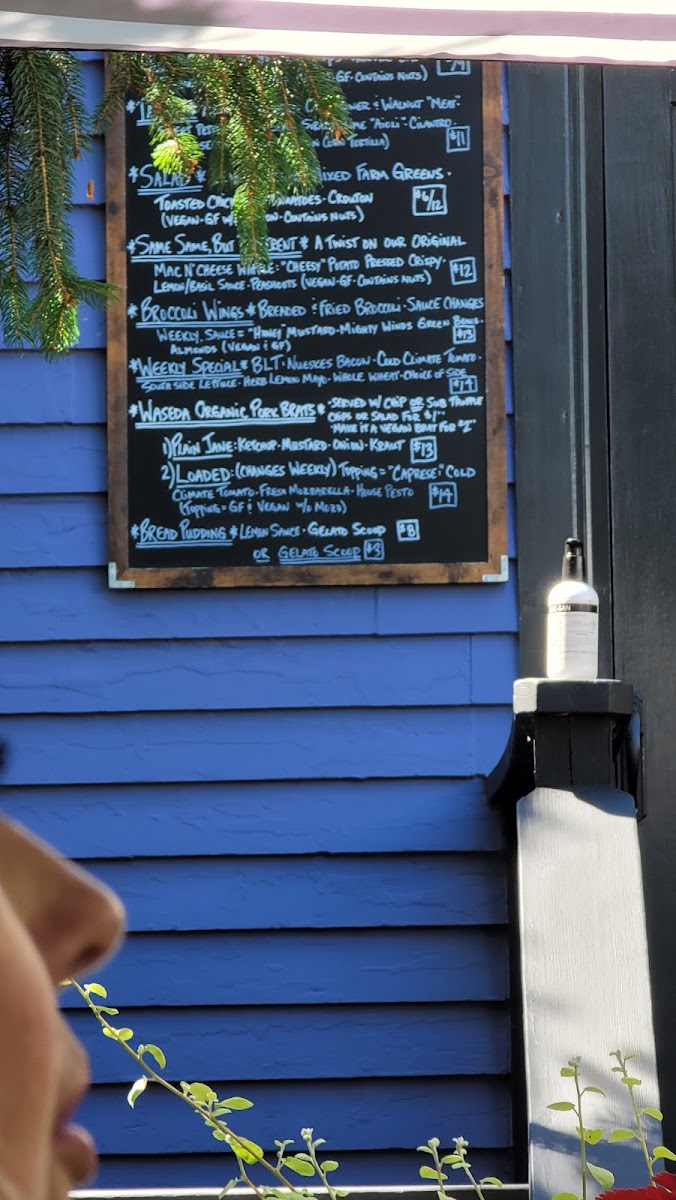 GF-CONTAINS NUTS)
& WALNUT "MEAT"
"AIOLI"-CILANTRO-
CORN TORTILLA) $11
*SALAD* MIXED FARM GREENS-
TOASTED TOMATOES-CROUTON $6/12
(VEGAN-GF -CONTAINS NUTS)
*SAME SAME, BUT * A TWIST ON OUR ORIGINAL
MAC N' CHEESE "CHEESY" POTATO PRESSED CRISPY- $12
LEMON/BASIL SAUCE-PEASHOOTS (VEGAN-GF-CONTAINS NUTS)
*BROCCOLI WINGS* BREADED & FRIED BROCCOLI-SAUCE CHANGES
WEEKLY. SAUCE= "HONEY" MUSTARD-MIGHTY WINDS GREEN BEANS-
ALMONDS (VEGAN & GF) $13
*WEEKLY SPECIAL* BLT-NUESKES BACON-COLD CLIMATE TOMATO-
SOUTH SIDE LETTUCE-HERB LEMON MAYO-WHOLE WHEAT-CHOICE OF SIDE $14
*WASEDA ORGANIC PORK BRATS* -SERVED W/ CHIP OR SUB TRUFFLE
CHIPS OR SALAD FOR $1"
"MAKE IT A VEGAN BRAT FOR $2"
1) PLAIN JANE: KETCHUP-MUSTARD-ONION-KRAUT $13
2) LOADED: (CHANGES WEEKLY) TOPPING= "CAPRESE" COLD
CLIMATE TOMATO-FRESH MOZZARELLA-HOUSE PESTO $14
(TOPPING=GF & VEGAN W/O MOZZ)
*BREAD PUDDING* LEMON SAUCE-GELATO SCOOP $8
OR GELATO SCOOP $3